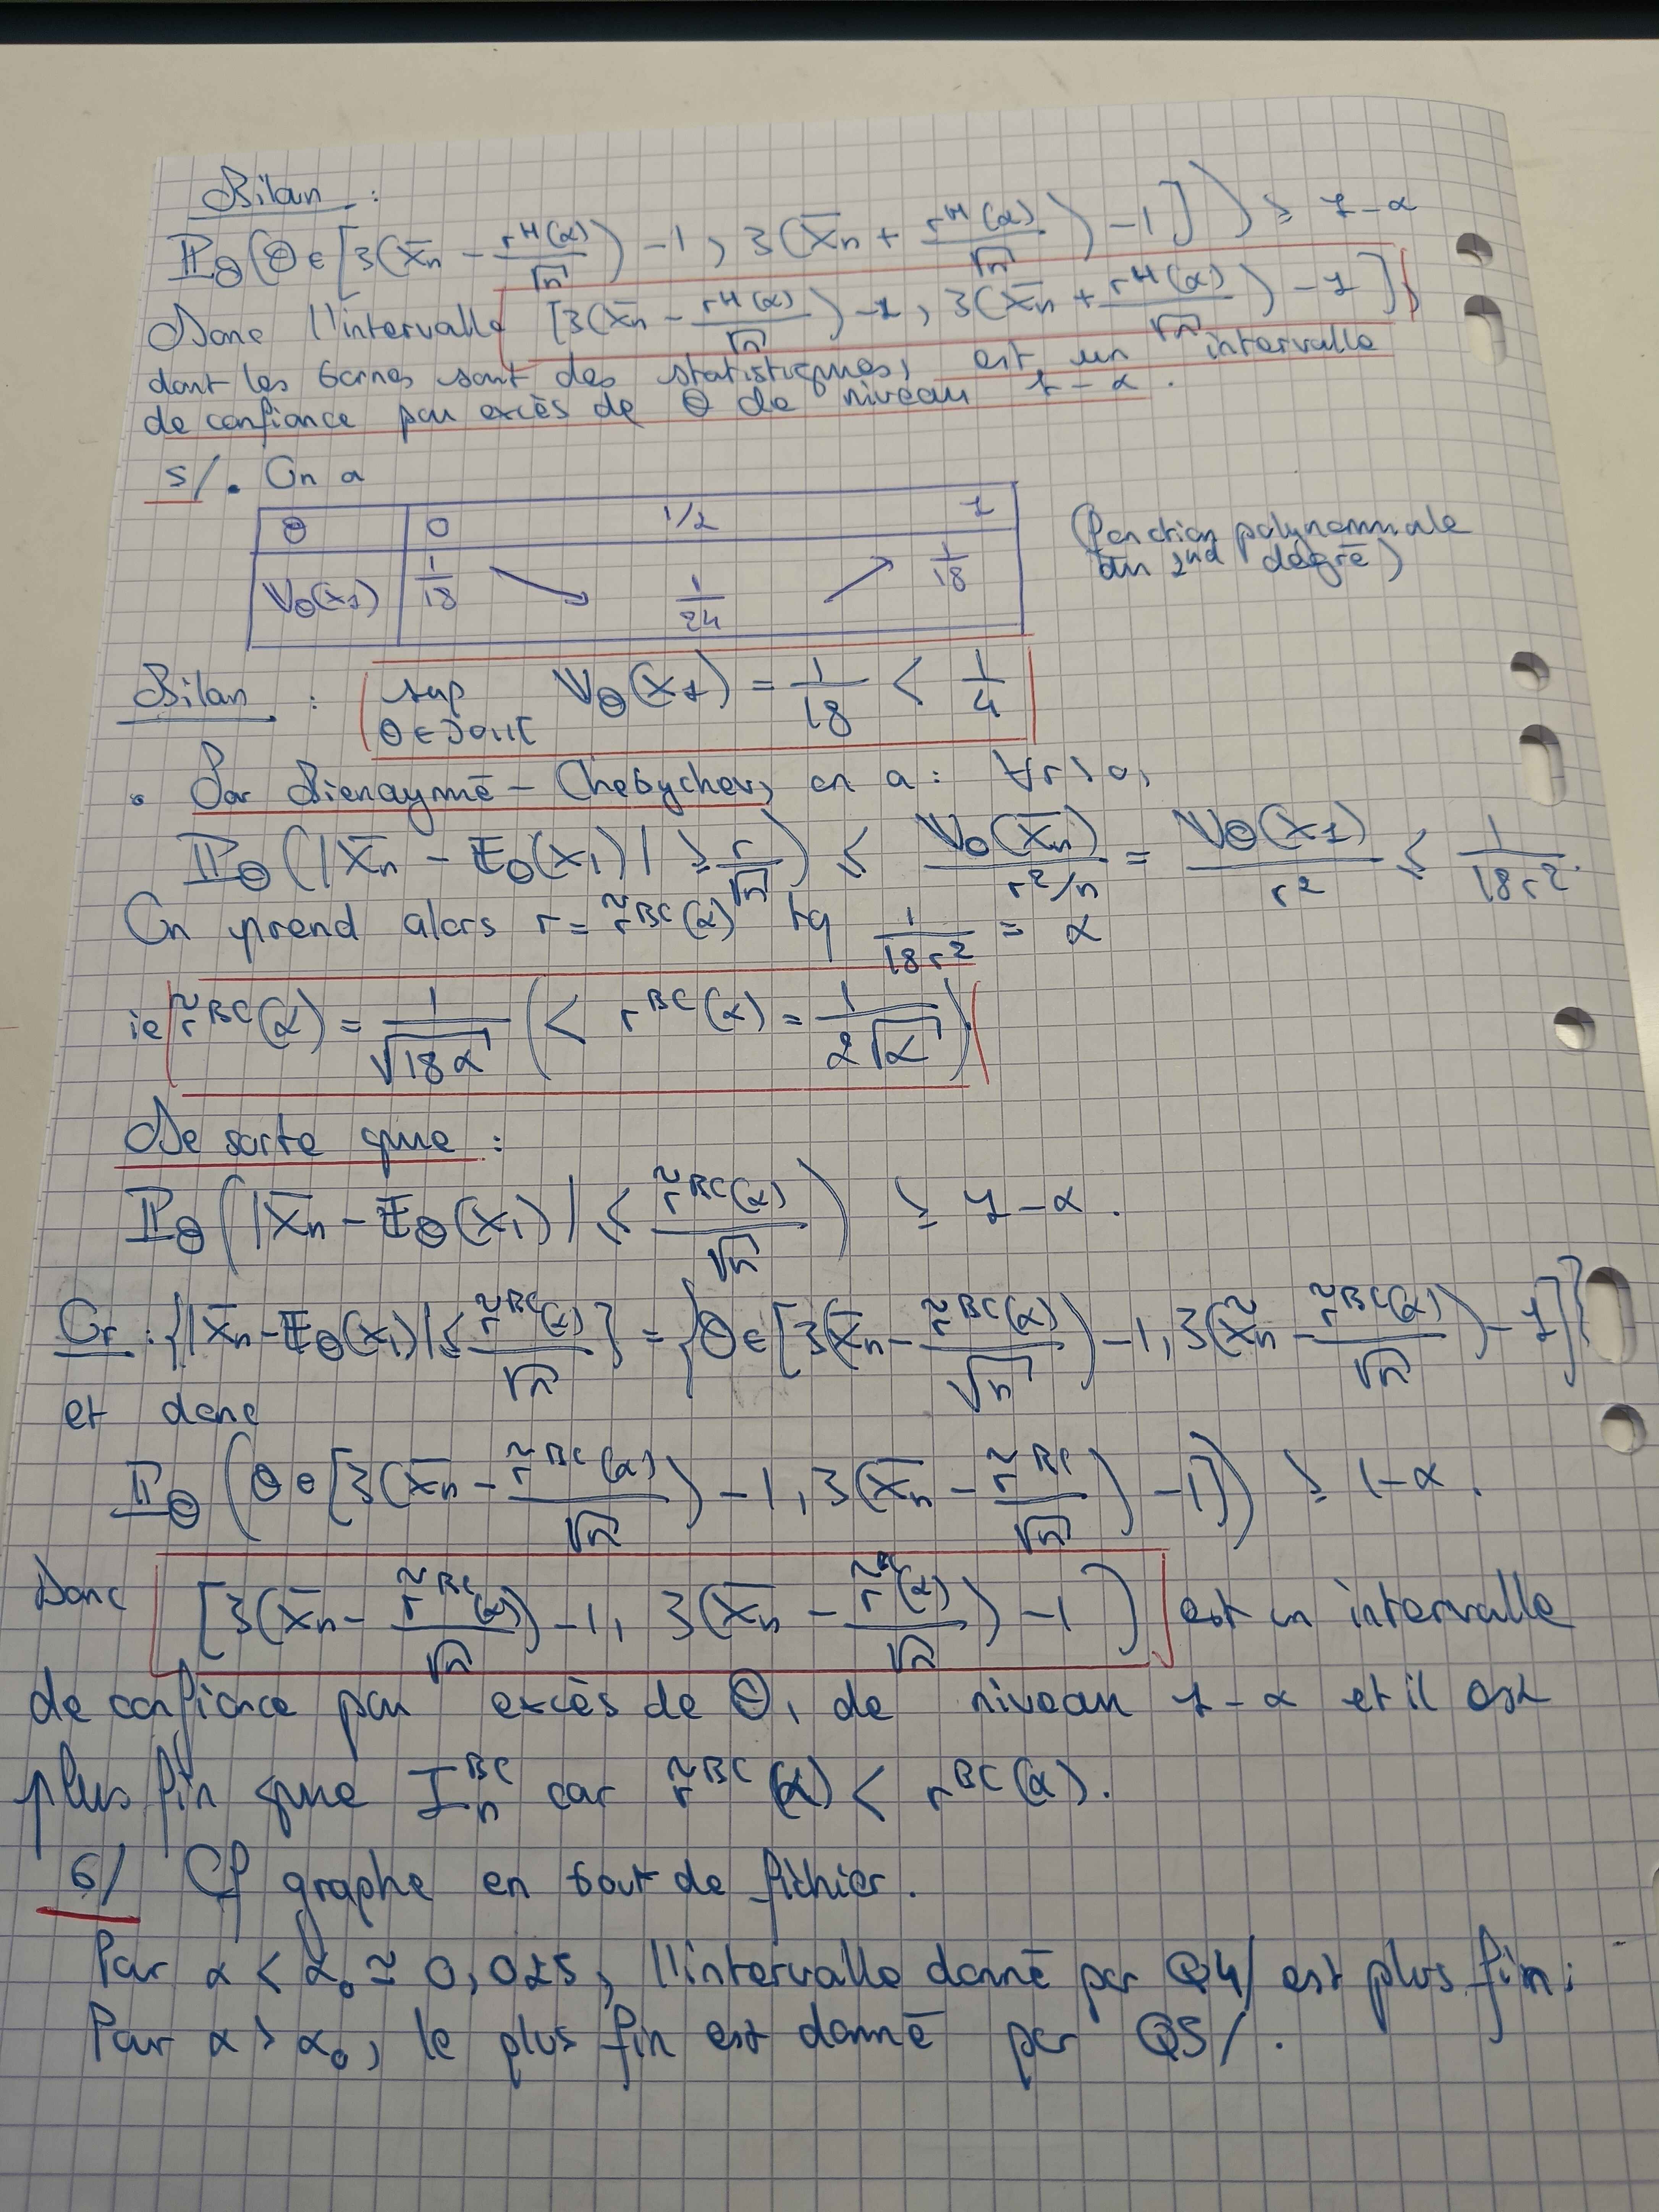 Bilan :
ℙ_θ(θ ∈ [3(X̄_n − r^H(α)/√n) − 1, 3(X̄_n + r^H(α)/√n) − 1]) ≥ 1−α
Donc l'intervalle [3(X̄_n − r^H(α)/√n) − 1, 3(X̄_n + r^H(α)/√n) − 1]
dont les bornes sont des statistiques, est un intervalle
de confiance par excès de θ de niveau 1−α.
5/. On a
θ | 0 1/2 1
𝕍_θ(X_1) | 1/18 ↘ 1/24 ↗ 1/18
(fonction polynomiale
du 2nd degré)
Bilan : sup_{θ∈]0,1[} 𝕍_θ(X_1) = 1/18 < 1/4
• Par Bienaymé – Chebychev, on a : ∀r>0,
ℙ_θ(|X̄_n − 𝔼_θ(X_1)| ≥ r/√n) ≤ 𝕍_θ(X̄_n)/(r²/n) = 𝕍_θ(X_1)/r² ≤ 1/(18r²).
On prend alors r = r̃^BC(α) tq 1/(18r²) = α
ie r̃^BC(α) = 1/√(18α) (< r^BC(α) = 1/(2√α))
De sorte que :
ℙ_θ(|X̄_n − 𝔼_θ(X_1)| ≤ r̃^BC(α)/√n) ≥ 1−α.
Or : {|X̄_n − 𝔼_θ(X_1)| ≤ r̃^BC(α)/√n} = {θ ∈ [3(X̄_n − r̃^BC(α)/√n) − 1, 3(X̃_n − r̃^BC(α)/√n) − 1]}
et donc
ℙ_θ(θ ∈ [3(X̄_n − r̃^BC(α)/√n) − 1, 3(X̄_n − r̃^BC/√n) − 1]) ≥ 1−α.
Donc [3(X̄_n − r̃^BC(α)/√n) − 1, 3(X̄_n − r̃^BC(α)/√n) − 1] est un intervalle
de confiance par excès de θ, de niveau 1−α et il est
plus fin que I_n^BC car r̃^BC(α) < r^BC(α).
6/ Cf graphe en bout de fichier.
Par α < α_0 ≃ 0,025, l'intervalle donné par Q4/ est plus fin;
Par α > α_0, le plus fin est donné par Q5/.